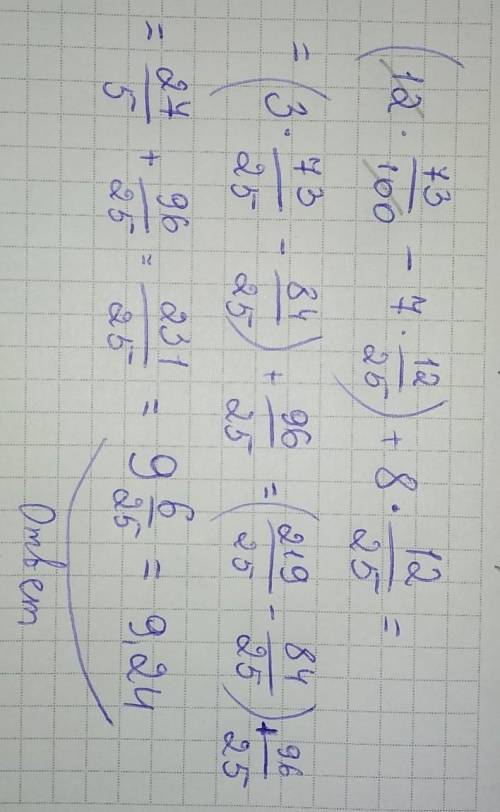 (12 · 73/100 − 7 · 12/25) + 8 · 12/25 =
= (3 · 73/25 − 84/25) + 96/25 = (219/25 − 84/25) + 96/25
= 27/5 + 96/25 = 231/25 = 9 6/25 = 9,24
Ответ